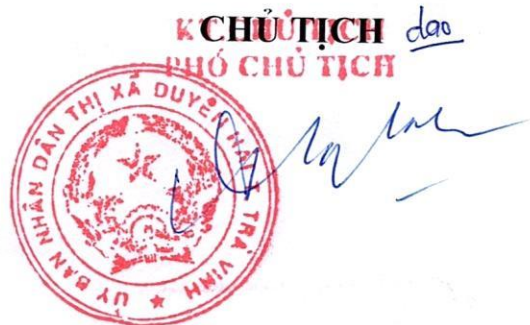 KT. CHỦ TỊCH dao
PHÓ CHỦ TỊCH
ỦY BAN NHÂN DÂN THỊ XÃ DUYÊN HẢI ★ TRÀ VINH